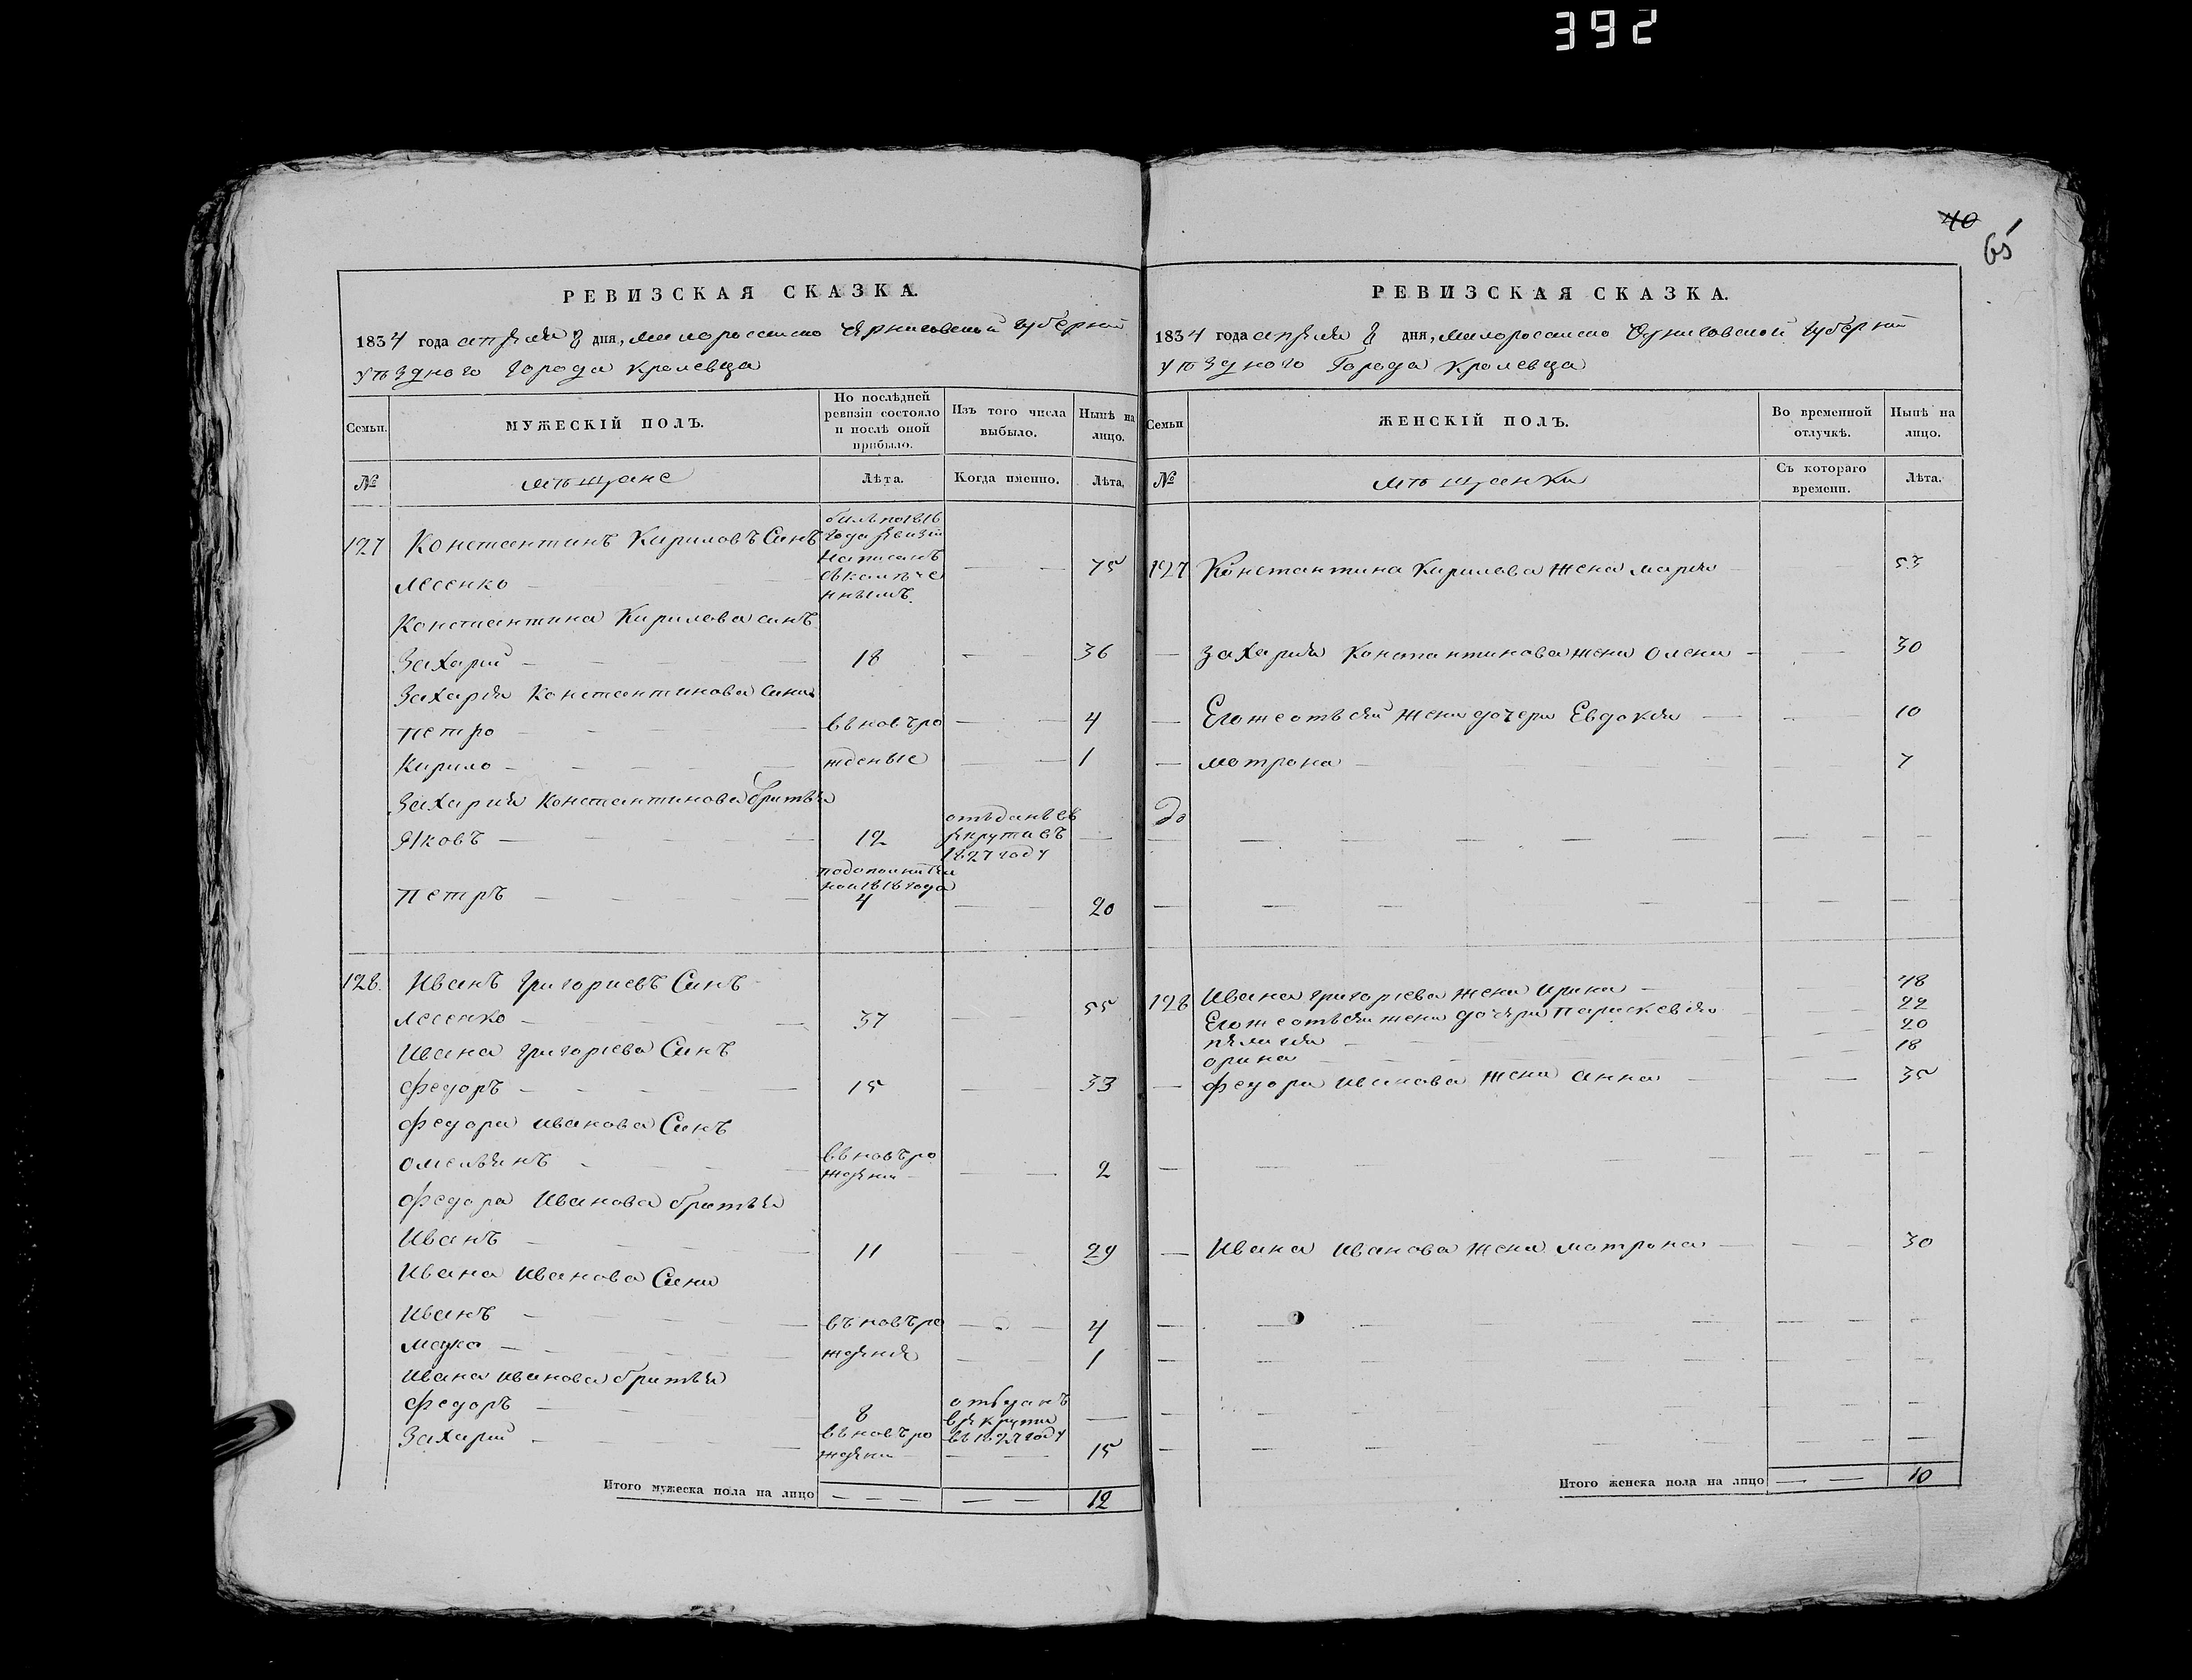 392
40
65
РЕВИЗСКАЯ СКАЗКА.
1834 года апреля 8 дня, малороссийско Черниговской губернии
уѣздного города Кролевца
Семьи.
МУЖЕСКІЙ ПОЛЪ.
По послѣдней ревизіи состояло и послѣ оной прибыло.
Изъ того числа выбыло.
Нынѣ на лицо.
№
мѣщане
Лѣта.
Когда именно.
Лѣта.
127 Константинъ Кириловъ Синъ
билъ по 1816 года ревизии написанъ
Лесенко — 75
Константина Кирилова синъ
Захарий — 18 — 36
Захария Константинова сини
Петро — вьновъро — 4
Кирило — жденые — 1
Захария Константинова братья
Яковъ — 12 отъданъ въ рекрути въ 1827 году —
по дополнительной 1818 года
Петръ — 4 — 20
128. Иванъ Григориевъ Синъ
Лесенко — 37 — 55
Ивана Григориева Синъ
Федоръ — 15 — 33
Федора Иванова Синъ
Омельянъ — вьновъро ждени — 2
Федора Иванова братья
Иванъ — 11 — 29
Ивана Иванова Сини
Иванъ — въновъро — 4
— ждения — 1
Ивана Иванова братья
Федоръ — 8 отъданъ в рекрути въ 1827 году —
Захарий — вьновъро ждени — 15
Итого мужеска пола на лицо — — — — — 12
РЕВИЗСКАЯ СКАЗКА.
1834 года апреля 8 дня, малороссийско Черниговской губернии
уѣздного Города Кролевца
Семьи
ЖЕНСКІЙ ПОЛЪ.
Во временной отлучкѣ.
Нынѣ на лицо.
№
мѣщанки
Съ котораго времени.
Лѣта.
127 Константина Кирилова жена Мария — 53
— Захария Константинова жена Олена — 30
— Его же отъ сей жени дочери Евдокия — 10
— Мотрона — 7
128 Ивана Григориева жена Ирина — 48
Его же отъ сей жени дочери Парискевия 22
Пелагия — 20
Орина — 18
— Федора Иванова жена Анна — 35
— Ивана Иванова жена Мотрона — 30
Итого женска пола на лицо — — 10